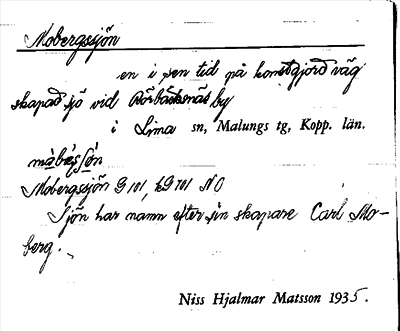 Mobergssjön
en i sen tid på konstgjord väg
skapad sjö vid Rörbäcksnäs by
i Lima sn, Malungs tg, Kopp. län.
Mobergssjön G 101, NO
Sjön har namn efter sin skapare Carl Mo-
berg.
Niss Hjalmar Matsson 1935.